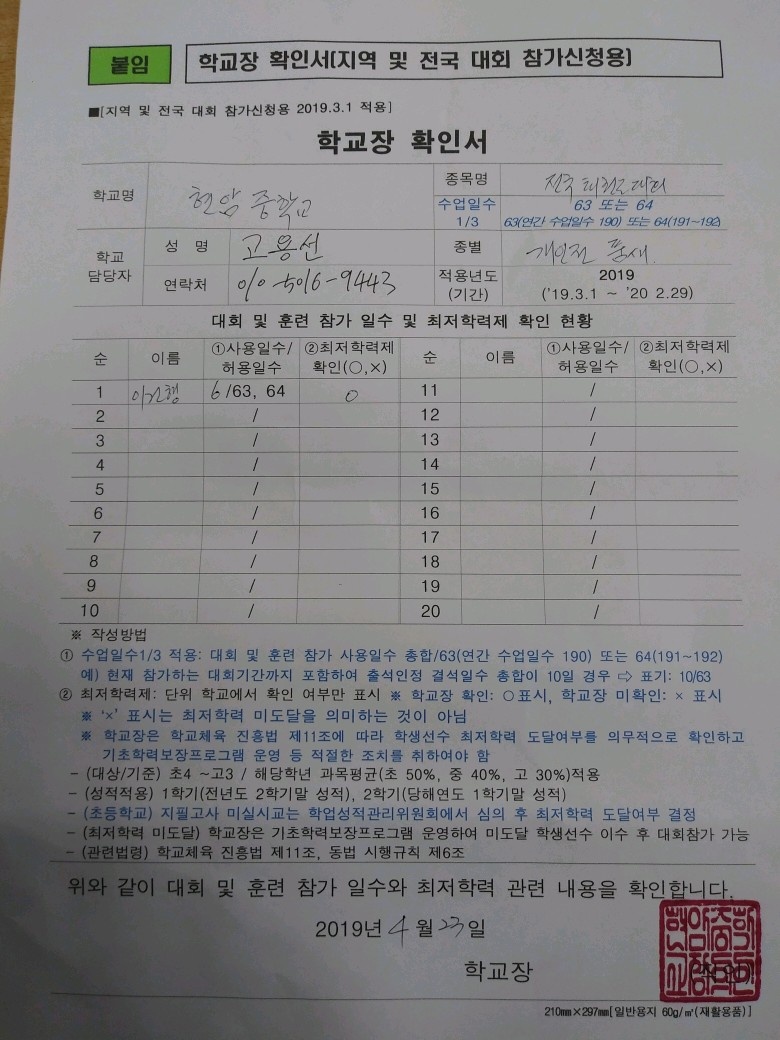 붙임
학교장 확인서(지역 및 전국 대회 참가신청용)
■[지역 및 전국 대회 참가신청용 2019.3.1 적용]
학교장 확인서
학교명 현암 중학교 종목명 전국 태권도대회
수업일수 1/3 63 또는 64
63(연간 수업일수 190) 또는 64(191~192)
학교 담당자 성 명 고용선 종별 개인전 품새.
연락처 010-5016-9443 적용년도 (기간) 2019
('19.3.1 ~ '20 2.29)
대회 및 훈련 참가 일수 및 최저학력제 확인 현황
순 이름 ①사용일수/허용일수 ②최저학력제 확인(○,×) 순 이름 ①사용일수/허용일수 ②최저학력제 확인(○,×)
1 6/63, 64 ○ 11 /
2 / 12 /
3 / 13 /
4 / 14 /
5 / 15 /
6 / 16 /
7 / 17 /
8 / 18 /
9 / 19 /
10 / 20 /
※ 작성방법
① 수업일수1/3 적용: 대회 및 훈련 참가 사용일수 총합/63(연간 수업일수 190) 또는 64(191~192)
예) 현재 참가하는 대회기간까지 포함하여 출석인정 결석일수 총합이 10일 경우 ⇨ 표기: 10/63
② 최저학력제: 단위 학교에서 확인 여부만 표시 ※ 학교장 확인: ○표시, 학교장 미확인: × 표시
※ '×' 표시는 최저학력 미도달을 의미하는 것이 아님
※ 학교장은 학교체육 진흥법 제11조에 따라 학생선수 최저학력 도달여부를 의무적으로 확인하고
기초학력보장프로그램 운영 등 적절한 조치를 취하여야 함
- (대상/기준) 초4 ~고3 / 해당학년 과목평균(초 50%, 중 40%, 고 30%)적용
- (성적적용) 1학기(전년도 2학기말 성적), 2학기(당해연도 1학기말 성적)
- (초등학교) 지필고사 미실시교는 학업성적관리위원회에서 심의 후 최저학력 도달여부 결정
- (최저학력 미도달) 학교장은 기초학력보장프로그램 운영하여 미도달 학생선수 이수 후 대회참가 가능
- (관련법령) 학교체육 진흥법 제11조, 동법 시행규칙 제6조
위와 같이 대회 및 훈련 참가 일수와 최저학력 관련 내용을 확인합니다.
2019년 4 월 23일
학교장 (직인)
210㎜×297㎜[일반용지 60g/㎡(재활용품)]